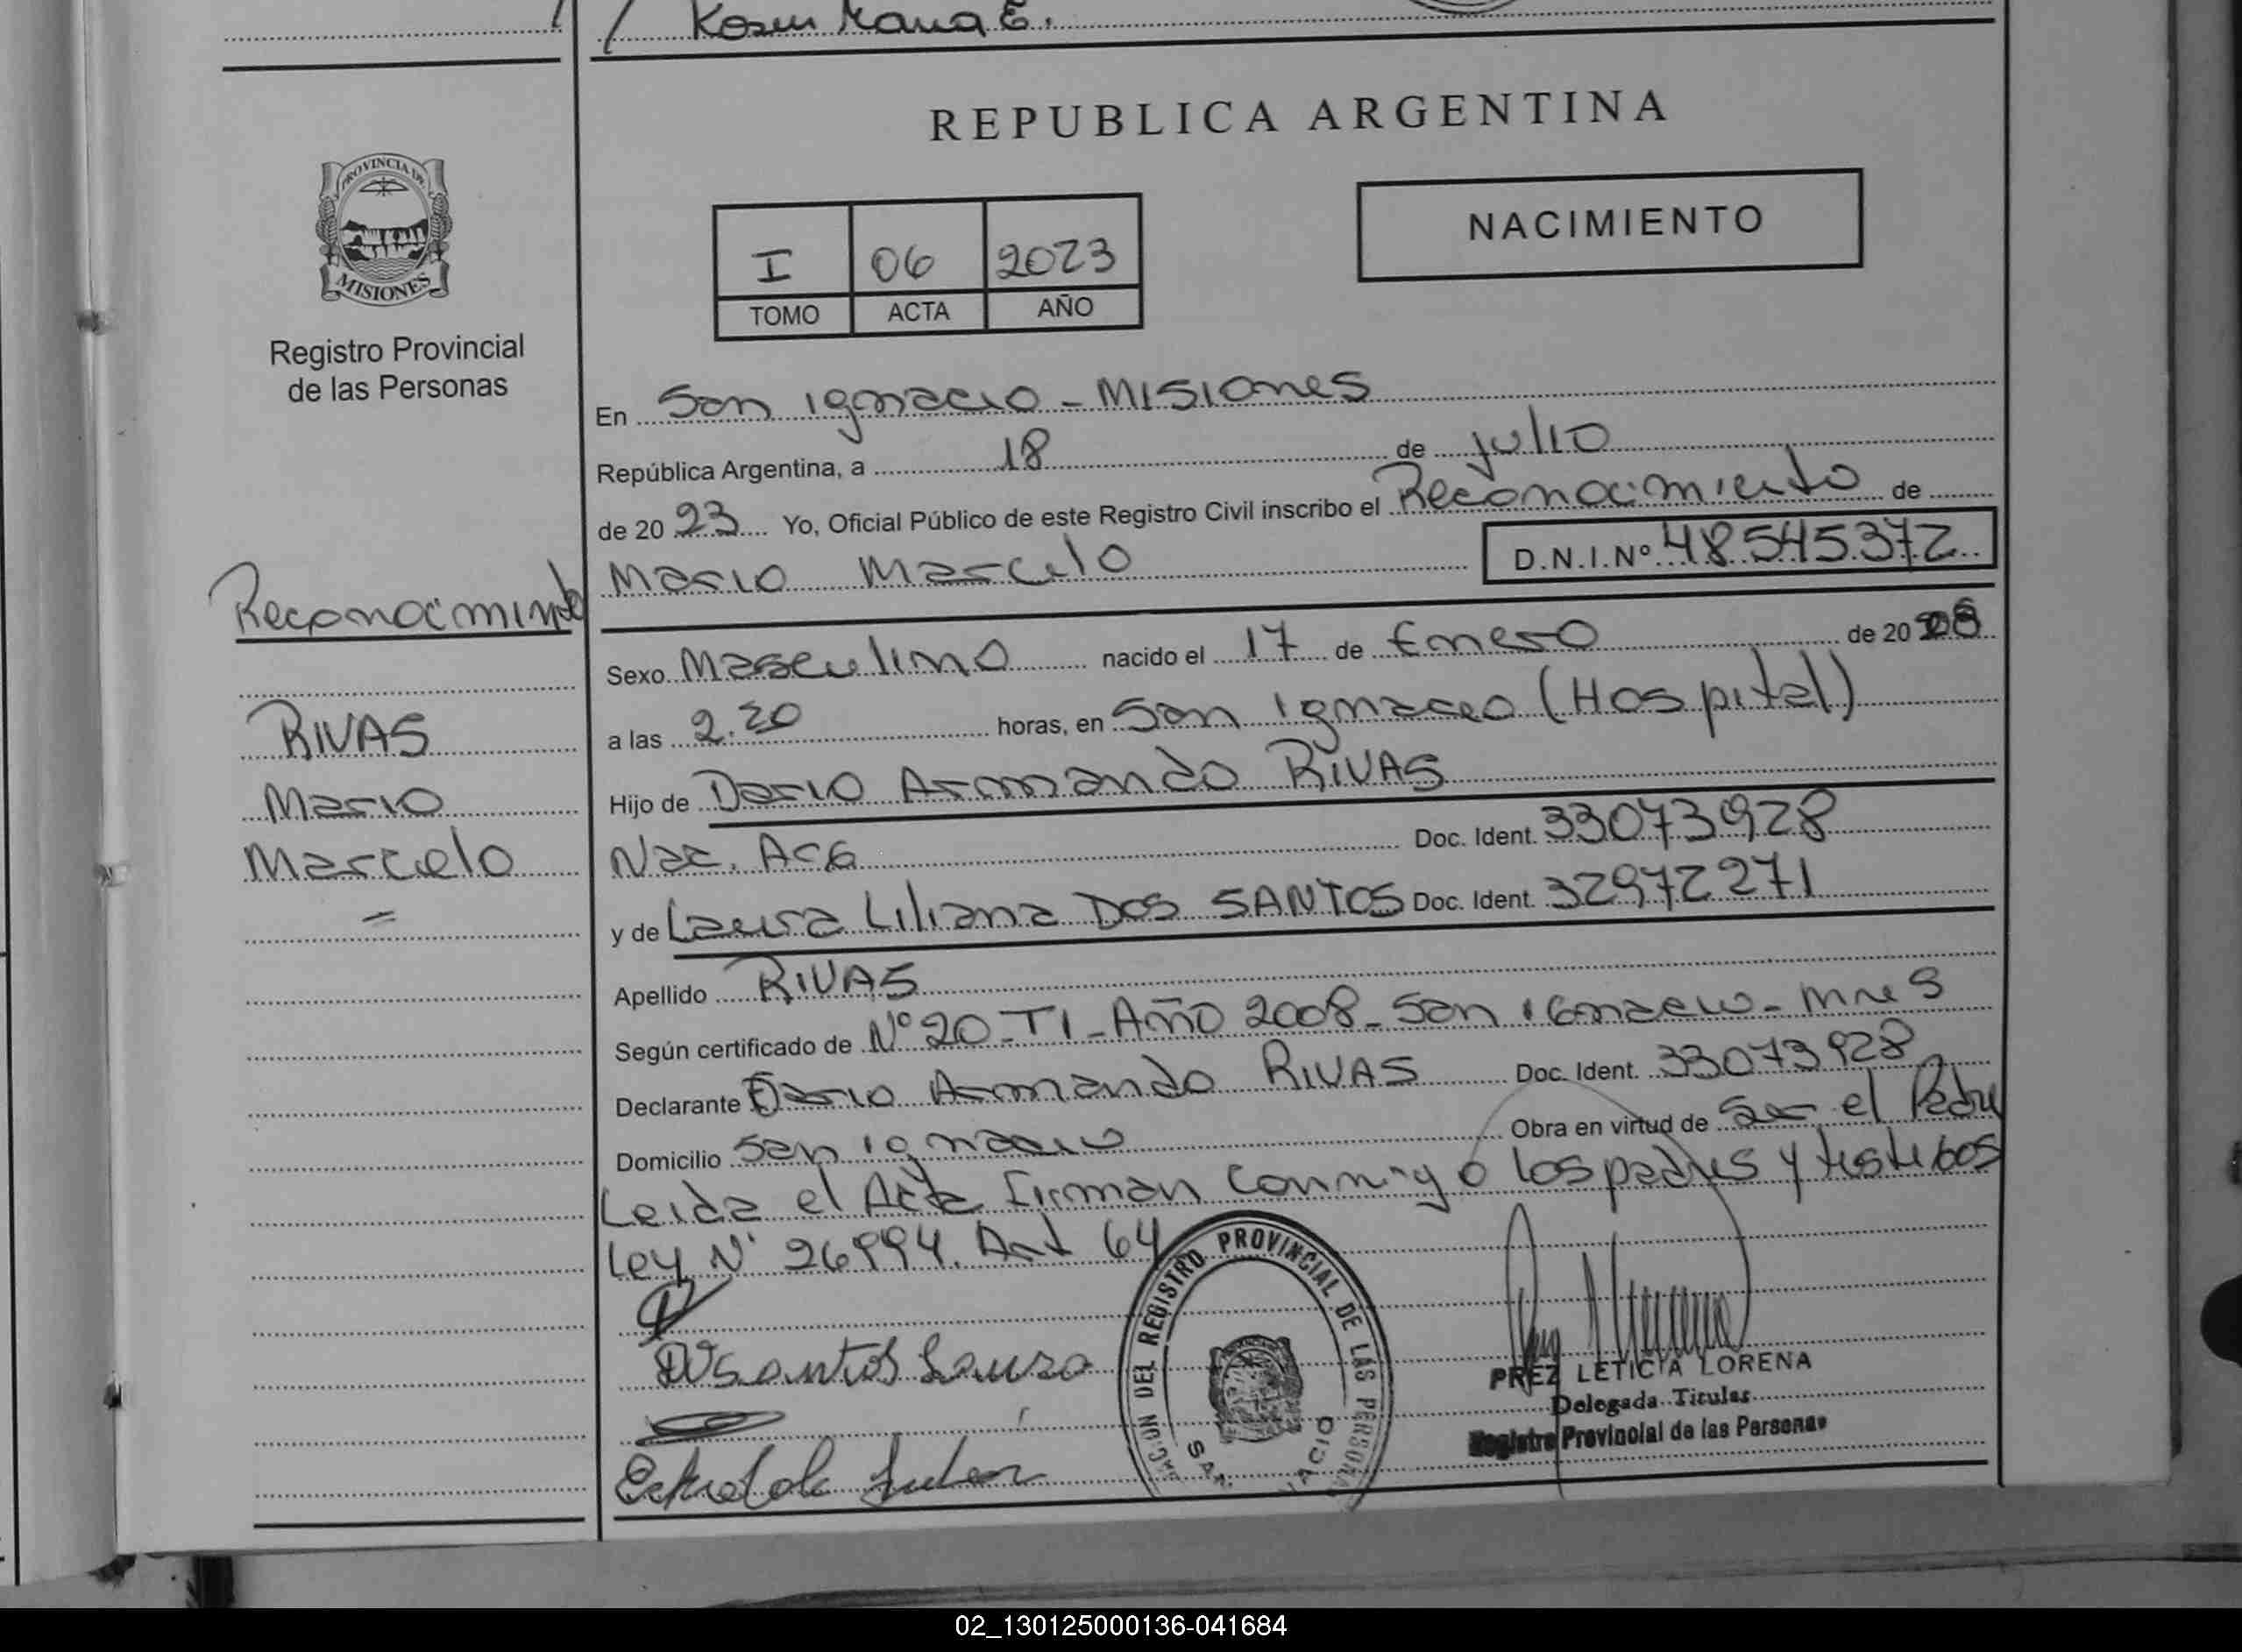 REPUBLICA ARGENTINA
PROVINCIA DE
MISIONES
Registro Provincial
de las Personas
NACIMIENTO
I 06 2023
TOMO ACTA AÑO
En San Ignacio - Misiones
República Argentina, a 18 de julio
de 20 23 Yo, Oficial Público de este Registro Civil inscribo el Reconocimiento de
Mario Marcelo D.N.I.Nº 48545372
Reconocimiento
RIVAS
Mario
Marcelo
=
Sexo Masculino nacido el 17 de Enero de 20 08
a las 2.20 horas, en San Ignacio (Hospital)
Hijo de Dario Armando RIVAS
Nac. Arg Doc. Ident. 33073928
y de Laura Liliana DOS SANTOS Doc. Ident. 32972271
Apellido RIVAS
Según certificado de Nº 20 - T I - AÑO 2008 - San Ignacio - Mnes
Declarante Dario Armando RIVAS Doc. Ident. 33073928
Domicilio San Ignacio Obra en virtud de Ser el Padre
Leida el Acta firman conmigo los padres y testigos
Ley Nº 26994. Art 64
DOSantos Laura
DEL REGISTRO PROVINCIAL DE LAS PERSONAS
PREZ LETICIA LORENA
Delegada Titular
Registro Provincial de las Personas
02_130125000136-041684